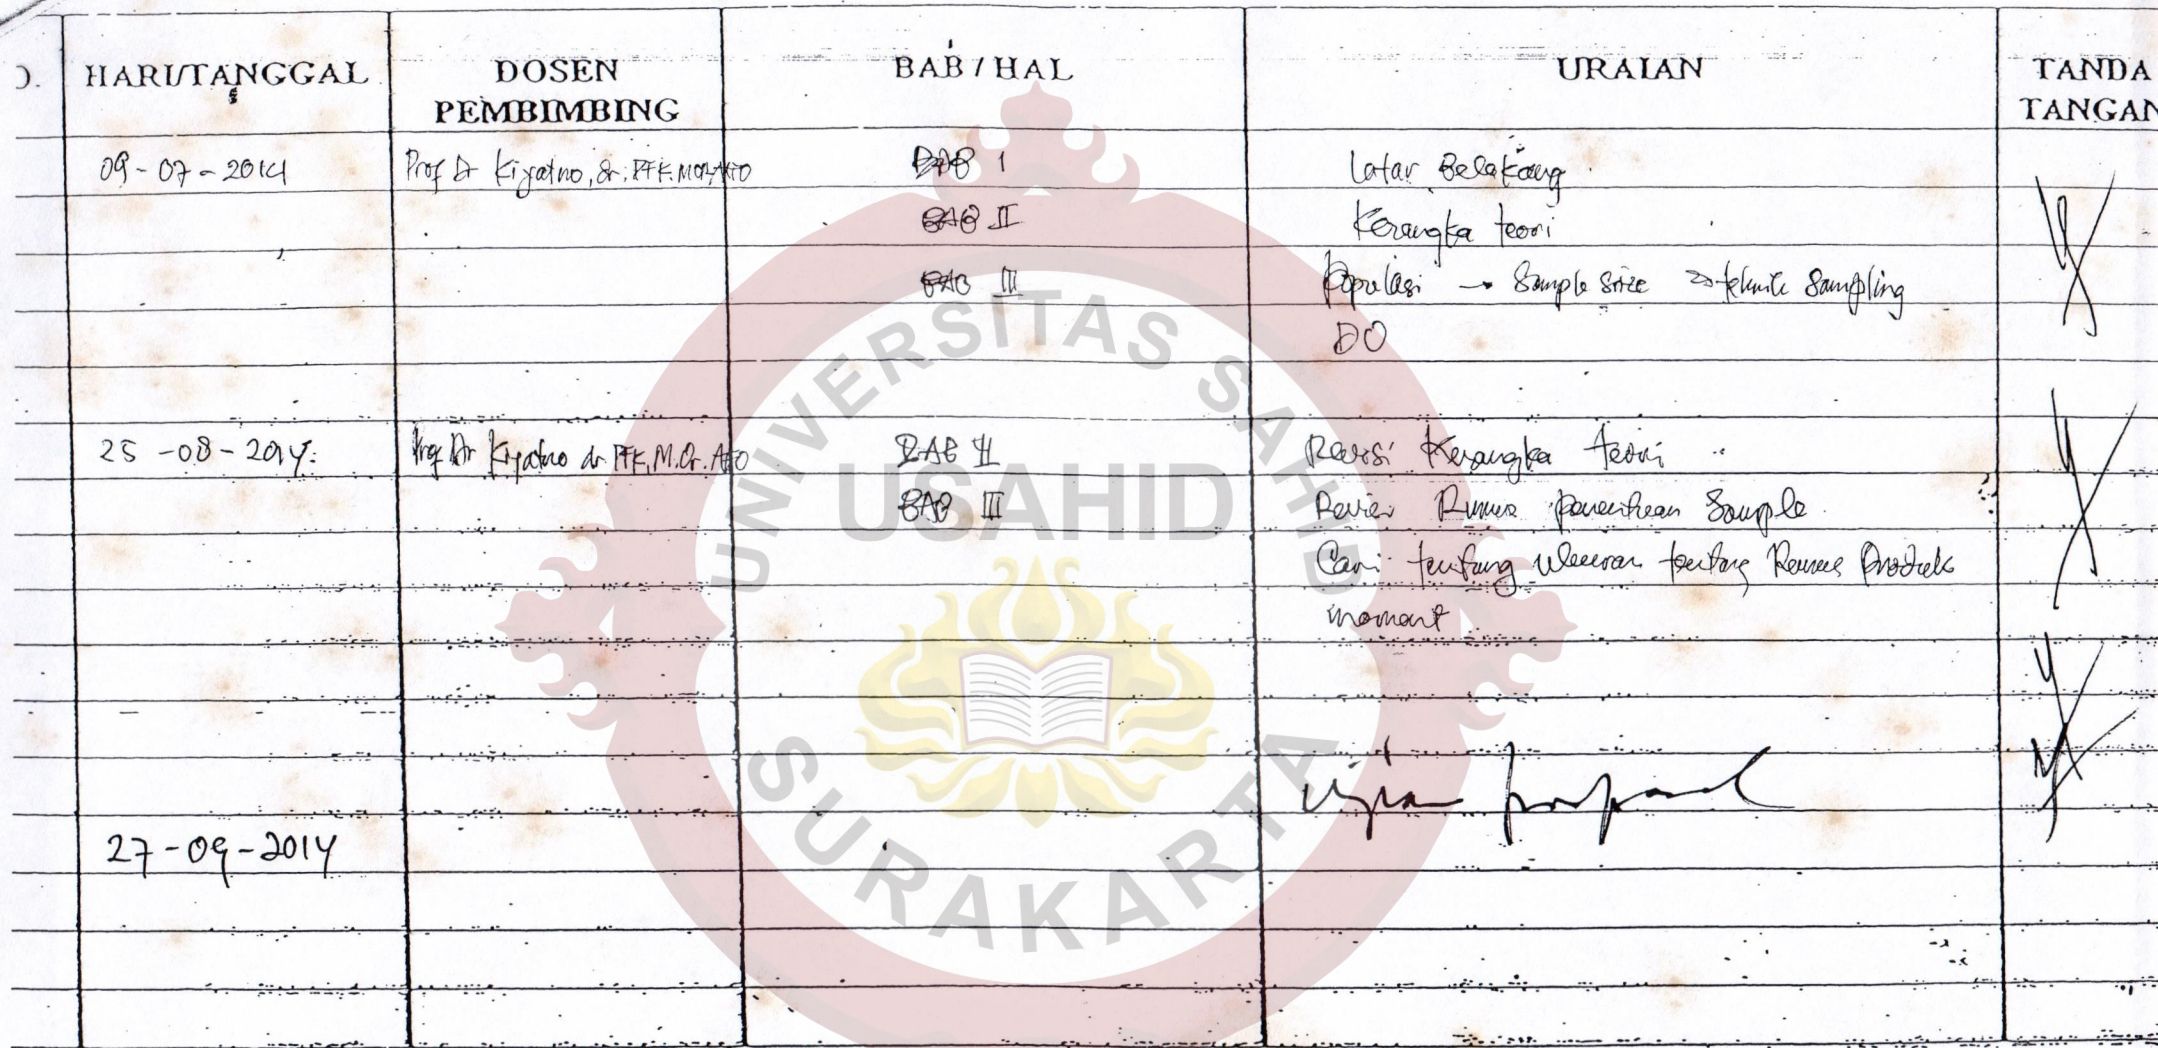 HARI/TANGGAL DOSEN PEMBIMBING BAB / HAL URAIAN TANDA TANGAN
09-07-2014 Prof Dr Kiyatno, dr. PFK. M.Or. AIFO BAB I Latar Belakang
BAB II Kerangka teori
BAB III Populasi → Sample size → teknik Sampling
DO
25-08-2014. Prof Dr Kiyatno dr PFK, M.Or. AIFO BAB II Revisi Kerangka teori
BAB III Sample
Cari tentang tentang Produk
moment
Ujian proposal
27-09-2014
UNIVERSITAS SAHID
USAHID
SURAKARTA